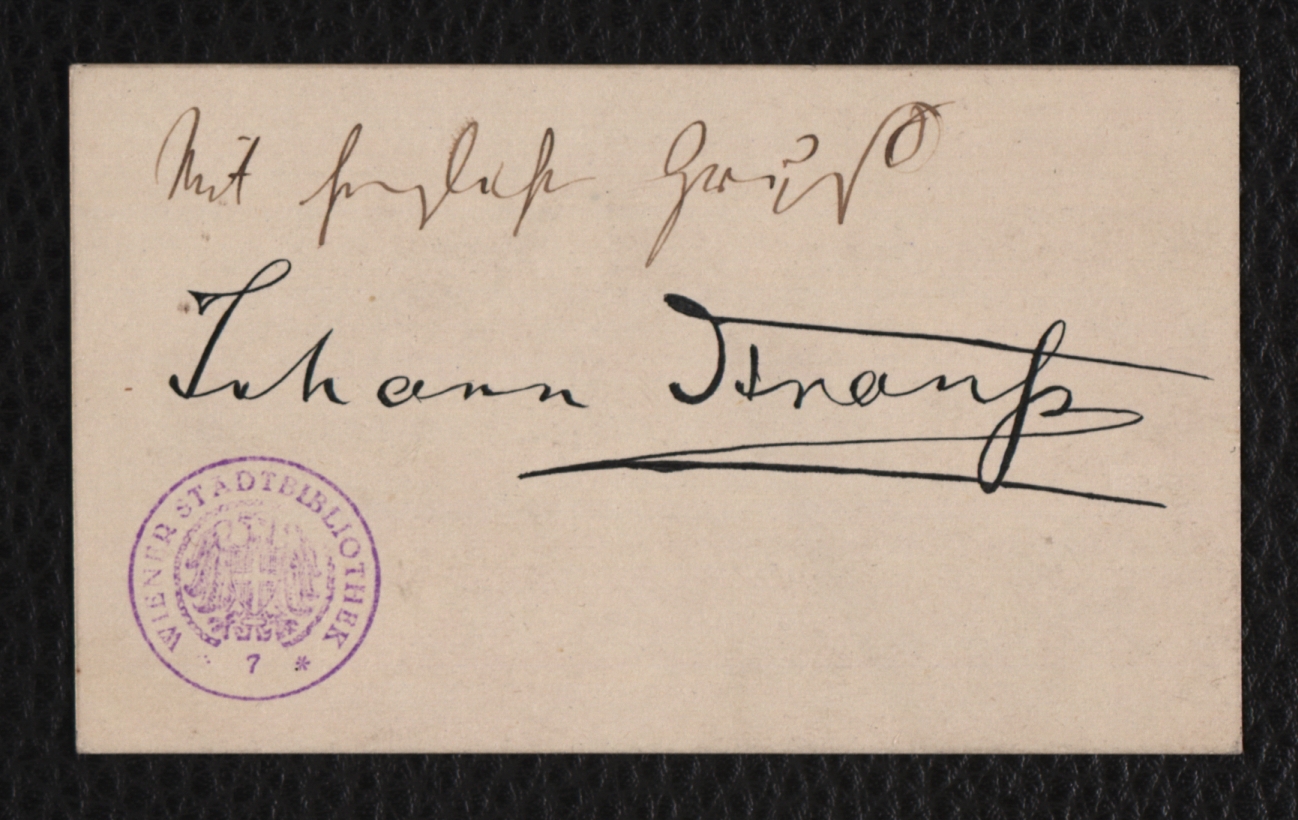 Mit herzlichst Gruß
Johann Strauß
WIENER STADTBIBLIOTHEK
7 *